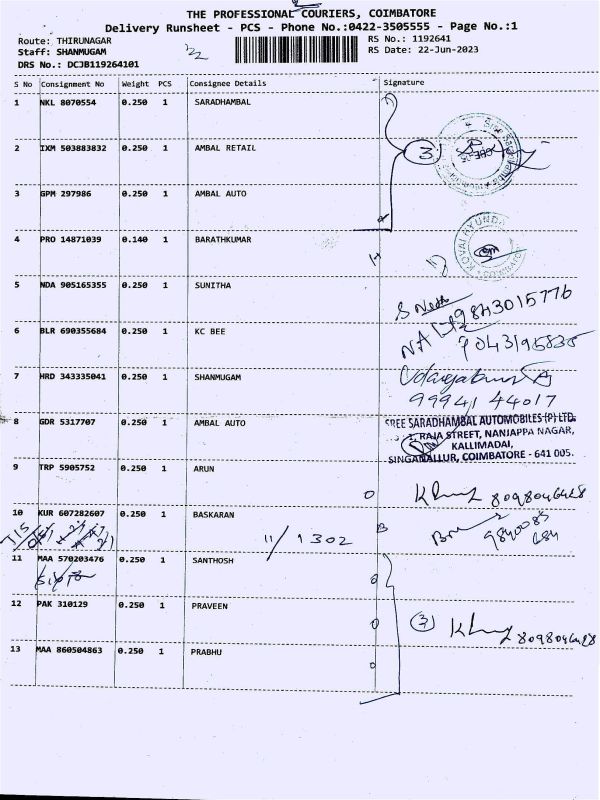 THE PROFESSIONAL COURIERS, COIMBATORE
Delivery Runsheet - PCS - Phone No.:0422-3505555 - Page No.:1
Route: THIRUNAGAR RS No.: 1192641
Staff: SHANMUGAM RS Date: 22-Jun-2023
DRS No.: DCJB119264101
S No Consignment No Weight PCS Consignee Details Signature
1 NKL 8070554 0.250 1 SARADHAMBAL
2 IXM 503883832 0.250 1 AMBAL RETAIL
3
3 GPM 297986 0.250 1 AMBAL AUTO
4 PRO 14871039 0.140 1 BARATHKUMAR
5 NDA 905165355 0.250 1 SUNITHA
9843015776
6 BLR 690355684 0.250 1 KC BEE
7043195835
7 HRD 343335041 0.250 1 SHANMUGAM
99941 44017
8 GDR 5317707 0.250 1 AMBAL AUTO
SREE SARADHAMBAL AUTOMOBILES (P) LTD.
RAJA STREET, NANJAPPA NAGAR,
KALLIMADAI,
SINGANALLUR, COIMBATORE - 641 005.
9 TRP 5905752 0.250 1 ARUN
8098046428
10 KUR 607282607 0.250 1 BASKARAN
11/1302
984008
684
11 MAA 570203476 0.250 1 SANTHOSH
12 PAK 310129 0.250 1 PRAVEEN
3
8098046428
13 MAA 860504863 0.250 1 PRABHU